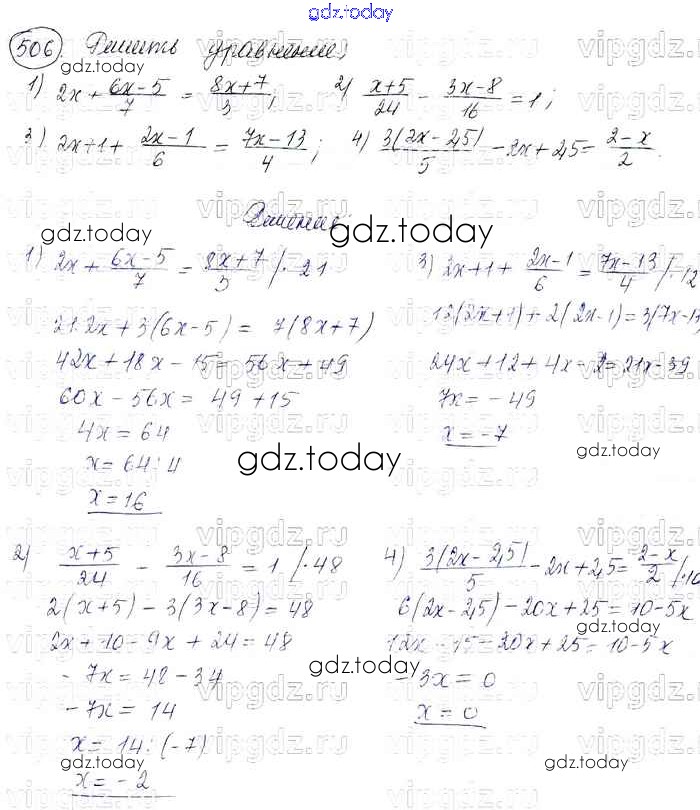 gdz.today
506. Решить уравнение:
1) 2x + (6x-5)/7 = (8x+7)/3; 2) (x+5)/24 - (3x-8)/16 = 1;
3) 2x+1 + (2x-1)/6 = (7x-13)/4; 4) 3(2x-2,5)/5 - 2x + 2,5 = (2-x)/2.
Решение:
1) 2x + (6x-5)/7 = (8x+7)/3 /·21
21·2x + 3(6x-5) = 7(8x+7)
42x + 18x - 15 = 56x + 49
60x - 56x = 49 + 15
4x = 64
x = 64:4
x = 16
3) 2x+1 + (2x-1)/6 = (7x-13)/4 /·12
12(2x+1) + 2(2x-1) = 3(7x-13
24x + 12 + 4x - 2 = 21x - 39
7x = -49
x = -7
2) (x+5)/24 - (3x-8)/16 = 1 /·48
2(x+5) - 3(3x-8) = 48
2x + 10 - 9x + 24 = 48
-7x = 48 - 34
-7x = 14
x = 14:(-7)
x = -2
4) 3(2x-2,5)/5 - 2x + 2,5 = (2-x)/2 /·10
6(2x-2,5) - 20x + 25 = 10 - 5x
12x - 15 - 20x + 25 = 10 - 5x
-3x = 0
x = 0
gdz.today
gdz.today
gdz.today
gdz.today
gdz.today
gdz.today
gdz.today
gdz.today
gdz.today
gdz.today